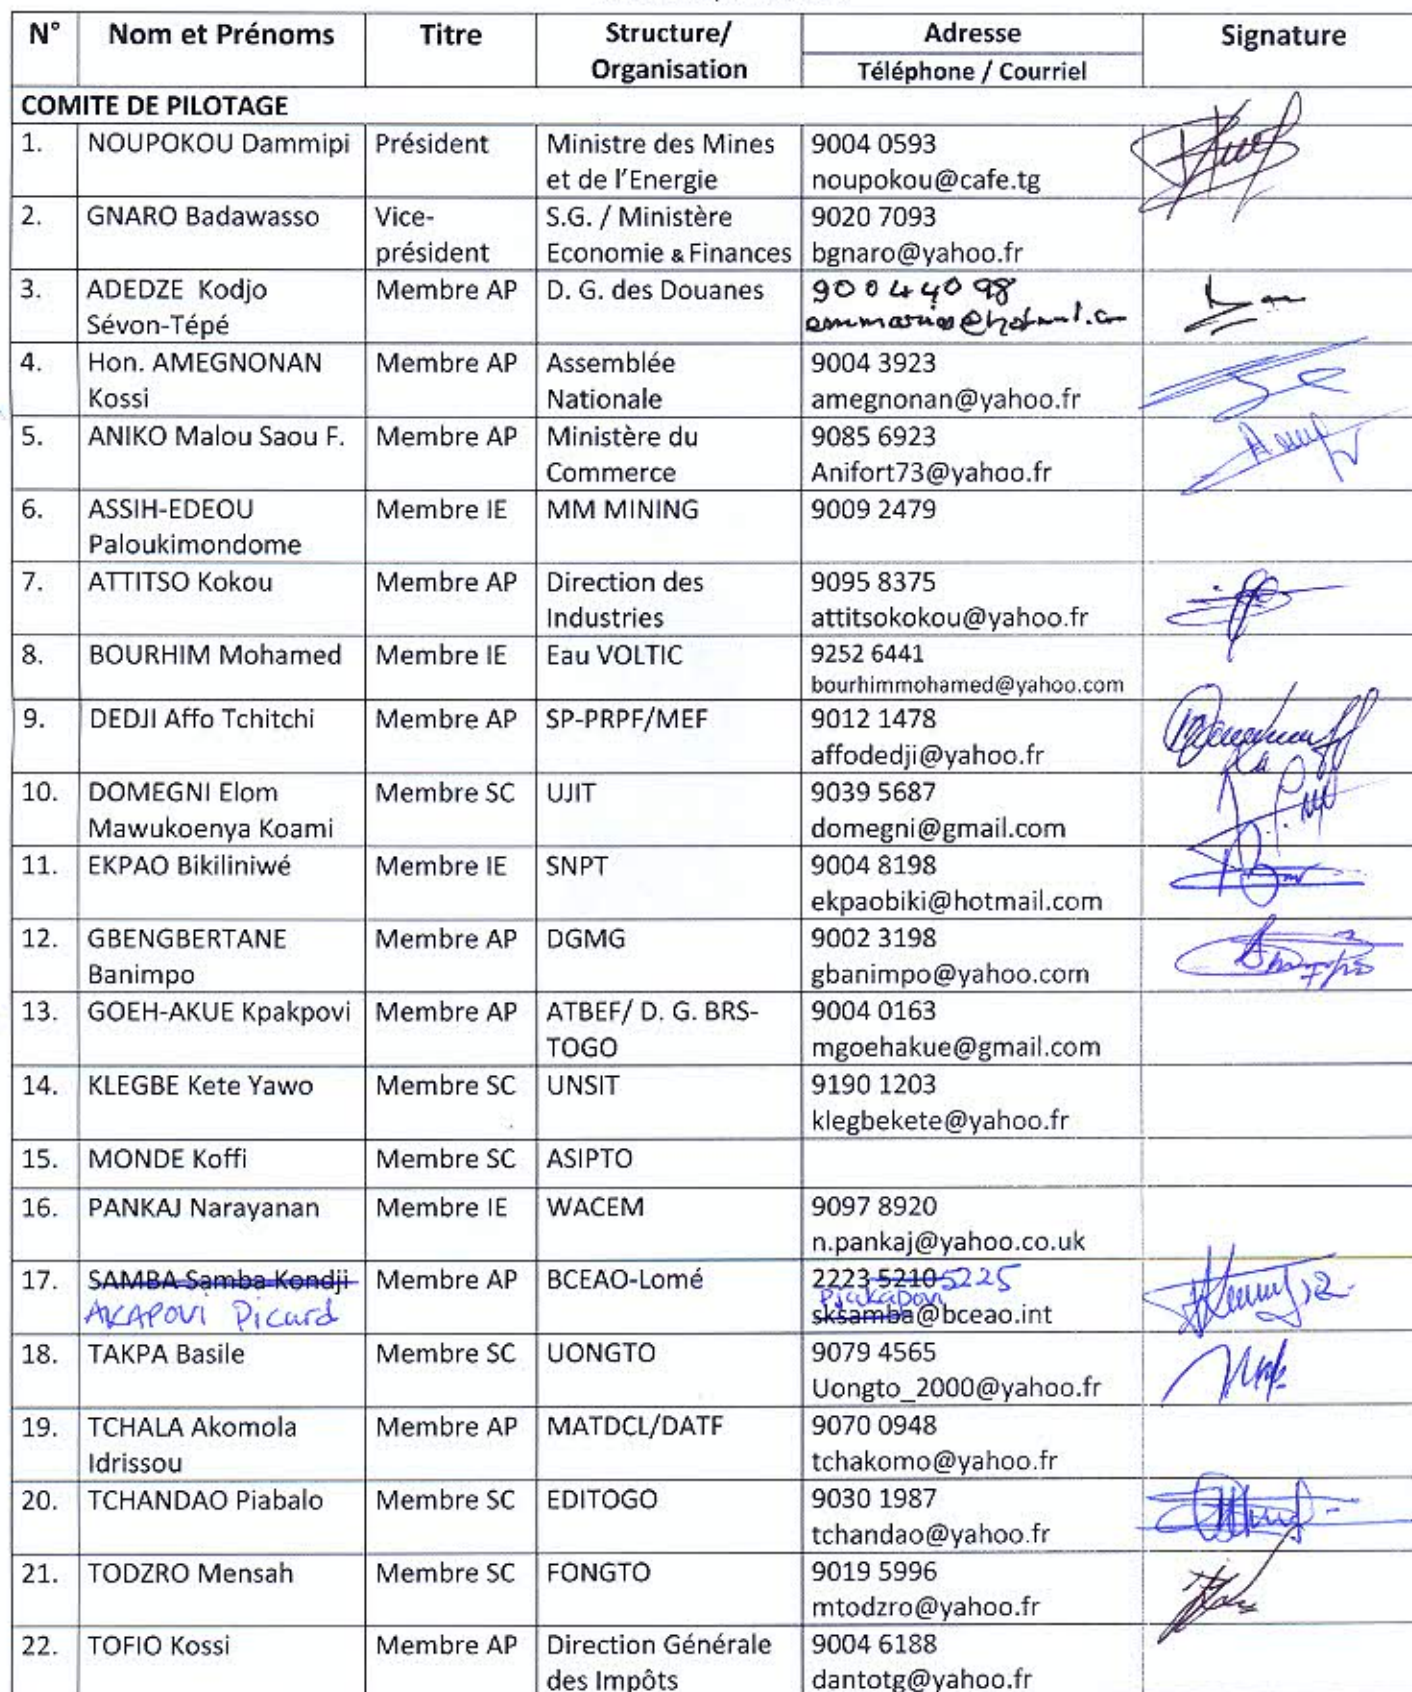 N° Nom et Prénoms Titre Structure/ Organisation Adresse Signature
Téléphone / Courriel
COMITE DE PILOTAGE
1. NOUPOKOU Dammipi Président Ministre des Mines 9004 0593
et de l'Energie noupokou@cafe.tg
2. GNARO Badawasso Vice- S.G. / Ministère 9020 7093
président Economie & Finances bgnaro@yahoo.fr
3. ADEDZE Kodjo Membre AP D. G. des Douanes 90044098
Sévon-Tépé
4. Hon. AMEGNONAN Membre AP Assemblée 9004 3923
Kossi Nationale amegnonan@yahoo.fr
5. ANIKO Malou Saou F. Membre AP Ministère du 9085 6923
Commerce Anifort73@yahoo.fr
6. ASSIH-EDEOU Membre IE MM MINING 9009 2479
Paloukimondome
7. ATTITSO Kokou Membre AP Direction des 9095 8375
Industries attitsokokou@yahoo.fr
8. BOURHIM Mohamed Membre IE Eau VOLTIC 9252 6441
bourhimmohamed@yahoo.com
9. DEDJI Affo Tchitchi Membre AP SP-PRPF/MEF 9012 1478
affodedji@yahoo.fr
10. DOMEGNI Elom Membre SC UJIT 9039 5687
Mawukoenya Koami domegni@gmail.com
11. EKPAO Bikiliniwé Membre IE SNPT 9004 8198
ekpaobiki@hotmail.com
12. GBENGBERTANE Membre AP DGMG 9002 3198
Banimpo gbanimpo@yahoo.com
13. GOEH-AKUE Kpakpovi Membre AP ATBEF/ D. G. BRS- 9004 0163
TOGO mgoehakue@gmail.com
14. KLEGBE Kete Yawo Membre SC UNSIT 9190 1203
klegbekete@yahoo.fr
15. MONDE Koffi Membre SC ASIPTO
16. PANKAJ Narayanan Membre IE WACEM 9097 8920
n.pankaj@yahoo.co.uk
17. SAMBA Samba Kondji Membre AP BCEAO-Lomé 2223 5210 5225
AKAPOVI Picard sksamba@bceao.int
18. TAKPA Basile Membre SC UONGTO 9079 4565
Uongto_2000@yahoo.fr
19. TCHALA Akomola Membre AP MATDCL/DATF 9070 0948
Idrissou tchakomo@yahoo.fr
20. TCHANDAO Piabalo Membre SC EDITOGO 9030 1987
tchandao@yahoo.fr
21. TODZRO Mensah Membre SC FONGTO 9019 5996
mtodzro@yahoo.fr
22. TOFIO Kossi Membre AP Direction Générale 9004 6188
des Impôts dantotg@yahoo.fr